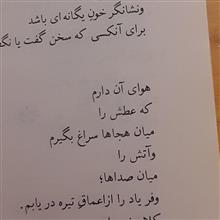 ونشانگر خون یگانه‌ای باشد
برای آنکسی که سخن گفت یا
هوای آن دارم
که عطش را
میان هجاها سراغ بگیرم
وآتش را
میان صداها؛
وفر یاد را ازاعماقِ تیره در یابم.